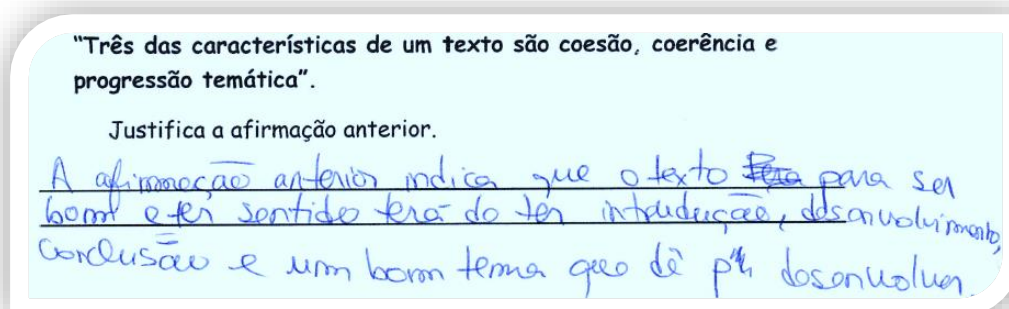 "Três das características de um texto são coesão, coerência e
progressão temática".
Justifica a afirmação anterior.
A afirmação anterior indica que o texto para ser
bom e ter sentido terá de ter introdução, desenvolvimento,
conclusão e um bom tema que dê p'ra desenvolver.